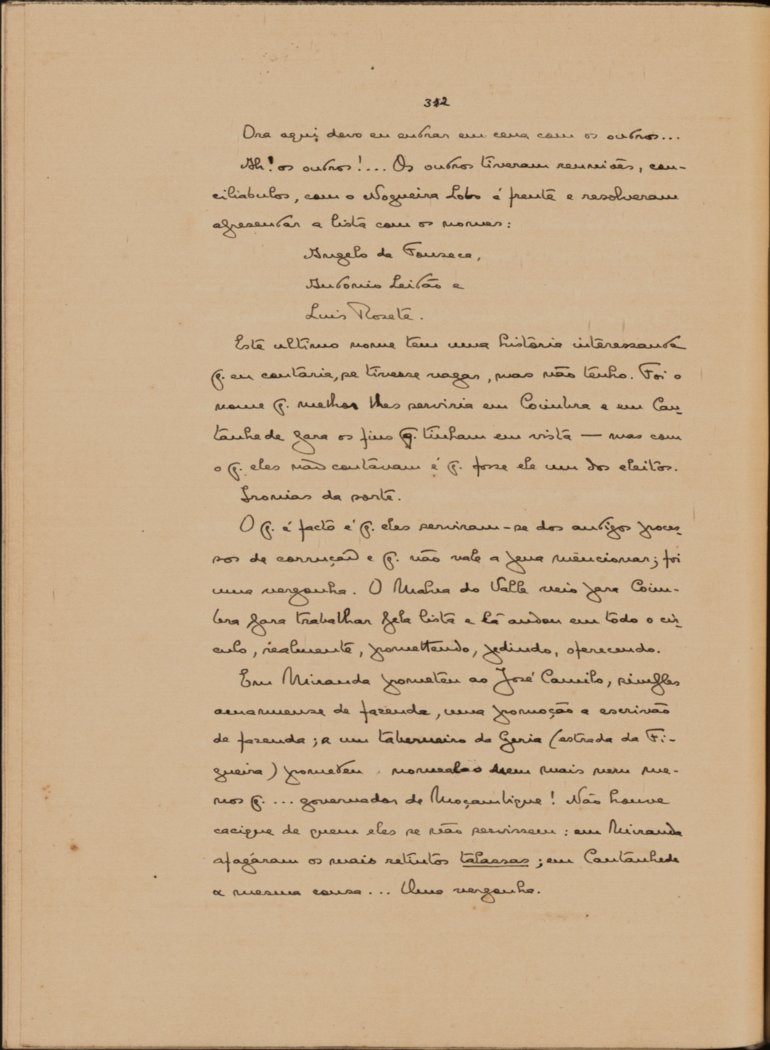 312
Ora aqui devo eu entrar em cena com os outros...
Ah! os outros!... Os outros tiveram reuniões, con-
ciliabulos, com o Nogueira Lobo á frente e resolveram
apresentar a lista com os nomes:
Angelo da Fonseca,
Antonio Leitão e
Luis Rosete.
Este ultimo nome tem uma historia interessante
q. eu contaria, se tivesse vagar, mas não tenho. Foi o
nome q. melhor lhes serviria em Coimbra e em Can-
tanhede para os fins q. tinham em vista — mas com
o q. eles não contavam é q. fosse ele um dos eleitos.
Ironias da sorte.
O q. é facto é q. eles serviram-se dos antigos proces-
sos de corrução e q. não vale a pena mencionar; foi
uma vergonha. O Malva do Valle veio para Coim-
bra para trabalhar pela lista e lá andou em todo o cir-
culo, realmente, promettendo, pedindo, oferecendo.
Em Miranda prometeu ao José Camilo, simples
amanuense de fazenda, uma promoção a escrivão
de fazenda; a um taberneiro da Geria (estrada da Fi-
gueira) prometeu nomealo nem mais nem me-
nos q. ... governador de Moçambique! Não houve
cacique de quem eles se não servissem: em Miranda
afagáram os mais retintos talassas; em Cantanhede
a mesma cousa... Uma vergonha.